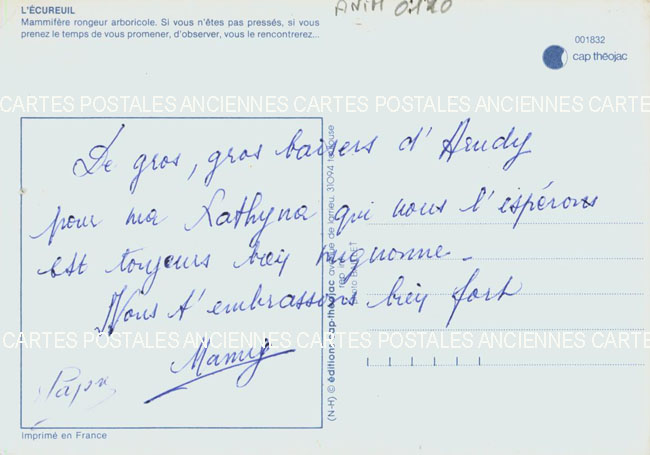 L'ÉCUREUIL
Mammifère rongeur arboricole. Si vous n'êtes pas pressés, si vous
prenez le temps de vous promener, d'observer, vous le rencontrerez...
ANIM 0120
001832
cap théojac
CARTES POSTALES ANCIENNES CARTES POSTALES ANCIENNES CARTES
De gros, gros baisers d'Arudy
pour ma Kathyna qui nous l'espérons
est toujours bien mignonne.
Nous t'embrassons bien fort
CARTES POSTALES ANCIENNES CARTES POSTALES ANCIENNES CARTES
Mamy
Papy
(N-H) © éditions cap-théojac avenue de larrieu 31094 toulouse
Imprimé en France